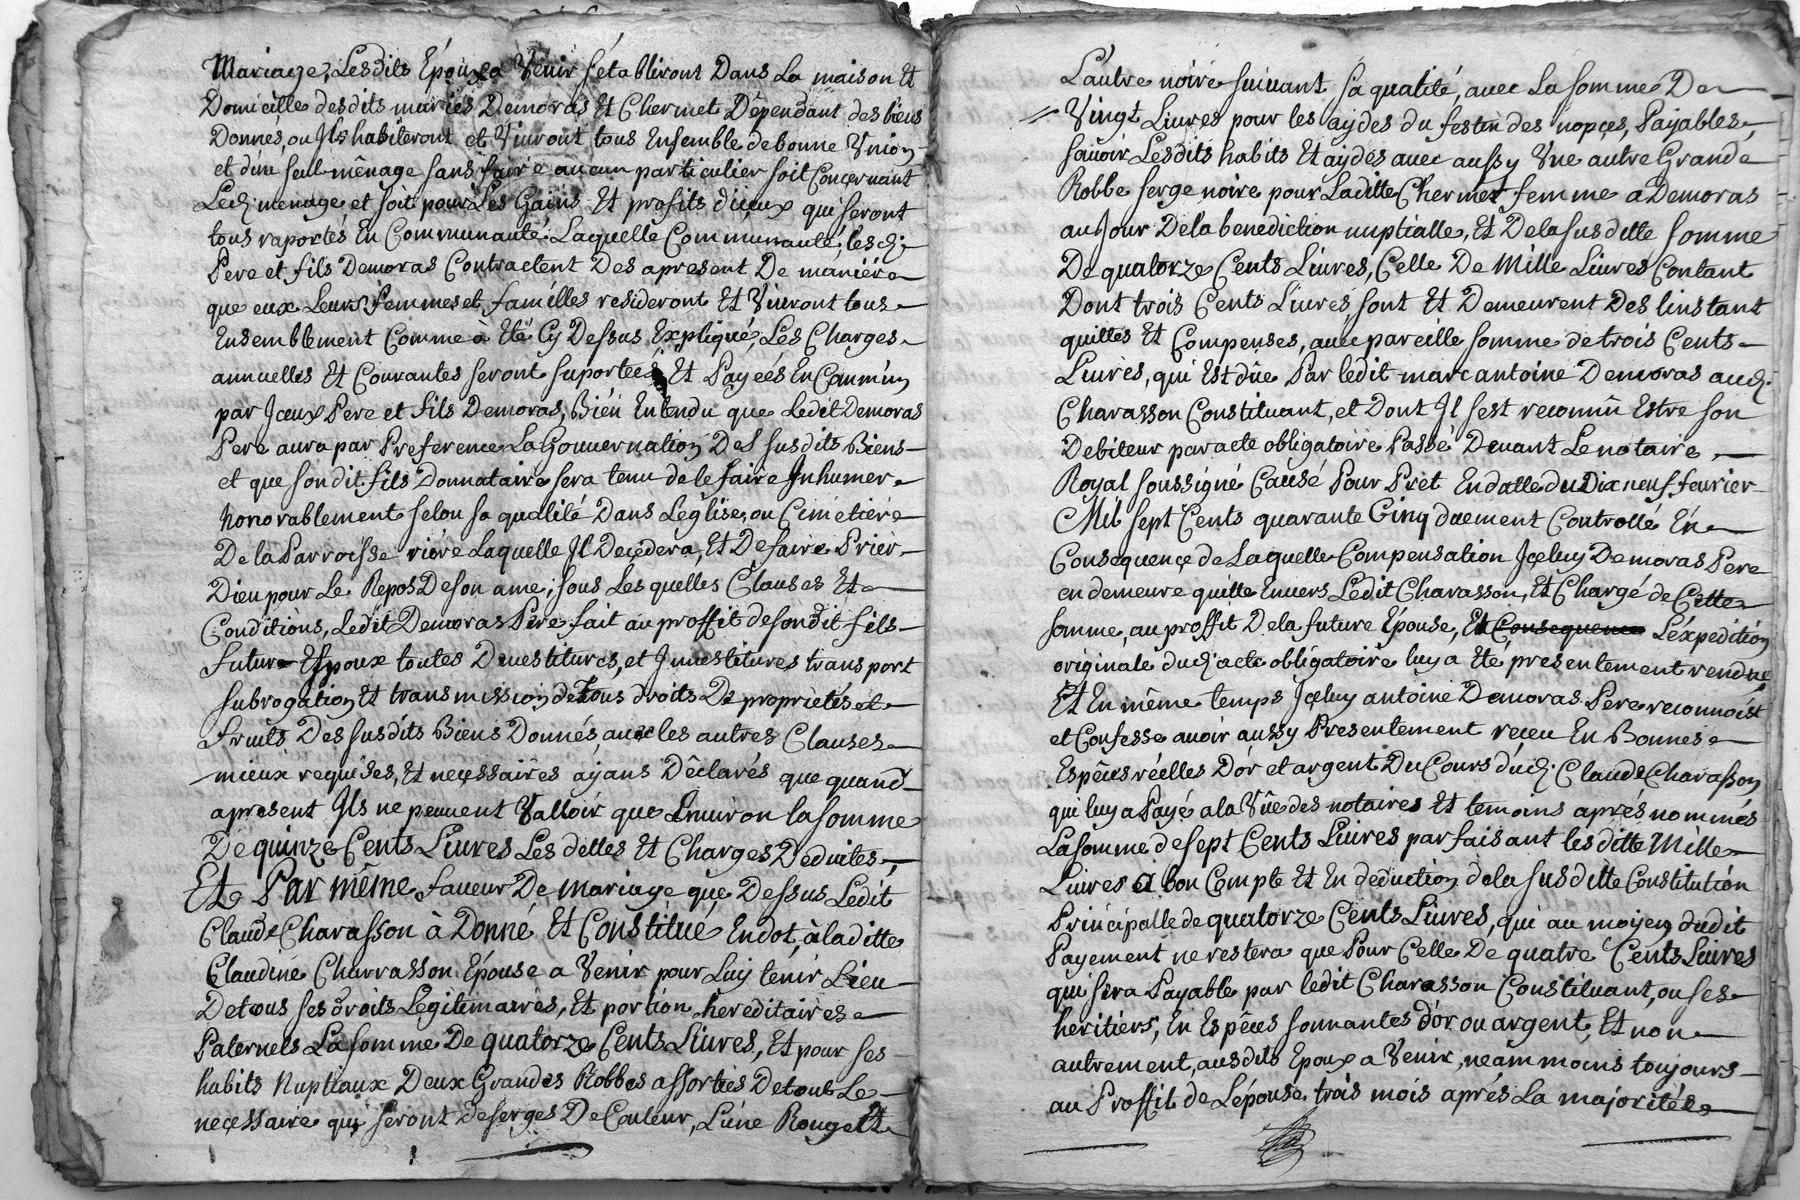 Mariage, Lesdits Epoux a Venir s'établiront Dans La maison Et
Domicille desdits mariés Demoras Et Chermet Dépendant des biens
Donnés, ou Ils habiteront et Viuront tous Ensemble de bonne Vnion
et d'un seul mênage sans faire aucun particulier soit Conçernant
Led. menage et soit pour Les Gains Et profits d'iceux qui seront
tous raportés En Communauté; Laquelle Communauté, lesd.
Pere et fils Demoras Contractent Des apresent De maniére
que eux Leurs femmes et familles resideront Et Viuront tous
Ensemblement Comme à Eté Cy Dessus Expliqué, Les Charges
annuelles Et Courantes seront suportées Et Payées En Commun
par Iceux Pere et fils Demoras, Bién Entendu que Ledit Demoras
Pere aura par Preference La Gouuernation Des susdits Biens
et que sondit fils Donnataire sera tenu de le faire Inhumer
honorablement selon sa qualité Dans L'église, ou Cimétiere
De la Parroisse riére Laquelle Il Decédera, Et De faire Prier
Dieu pour Le Repos De son ame; sous Les quelles Clauses Et
Conditions, Ledit Demoras Pere fait au proffit de sondit fils
futur Espoux toutes Deuestitures, et Inuestitures transport
subrogation Et transmission de Tous droits De proprietés et
fruits Des susdits Biens Donnés auec les autres Clauses
mieux requises, Et neçessaires ayans Dêclarés que quand
apresent Ils ne peuuent Valloir que Enuiron la somme
De quinze Cents Liures Les dettes Et Charges Deduites,
Et Par même faueur De mariage que Dessus Ledit
Claude Charasson à Donné Et Constitué En dot, à laditte
Claudine Charrasson Epouse a Venir pour Luy tenir Lieu
De tous ses droits Legitimaires, Et portion hereditaires
Paternels La somme De quatorze Cents Liures, Et pour ses
habits Nuptiaux Deux Grandes Robbes assorties De tout Le
neçessaire qui seront de serges De Couleur, L'une Rouge Et
L'autre noire suiuant sa qualité, auec La somme De
Vingt Liures pour les aydes du festin des nopçes, Payables
sauoir Lesdits habits Et aydes auec aussy Vne autre Grande
Robbe serge noire pour Laditte Chermet femme a Demoras
au Jour De la benediction nuptialle, Et De la susditte somme
De quatorze Cents Liures, Celle De Mille Liures Contant
Dont trois Cents Liures, sont Et Demeurent Des l'instant
quittes Et Compensés, auec pareille somme de trois Cents
Liures, qui Est dûe Par ledit marc antoine Demoras aud.
Charasson Constituant, et Dont Il s'est reconnû Estre son
Debiteur par acte obligatoire Passé Deuant Le notaire
Royal soussigné Causé Pour Prêt En datte du Dix neuf feurier
Mil sept Cents quarante Cinq duement Controllé En
Consequençe de Laquelle Compensation Içeluy Demoras Pere
en demeure quitte Enuers Ledit Charasson, Et Chargé de Cette
somme, au proffit De la future Epouse, Et Consequence L'éxpedition
originale dud. acte obligatoire luy a Eté presentement rendue
Et En même temps Içeluy antoine Demoras Pere reconnoist
et Confesse auoir aussy Presentement receu En Bonnes
Espéces réelles D'or et argent Du Cours dud. Claude Charasson
qui luy a Payé a la Vûe des notaires Et temoins aprés nommés
La somme de sept Cents Liures parfaisant lesditte Mille
Liures a bon Compte Et En déduction de la susditte Constitution
Principalle de quatorze Cents Liures, qui au moyen dudit
Payement ne restera que Pour Celle De quatre Cents Liures
qui sera Payable par ledit Charasson Constituant, ou ses
héritiers, En Espéces sonnantes d'or ou argent, Et non
autrement, ausdits Epoux a Venir, neammoins toujours
au Proffit de L'épouse trois mois aprés La majorité